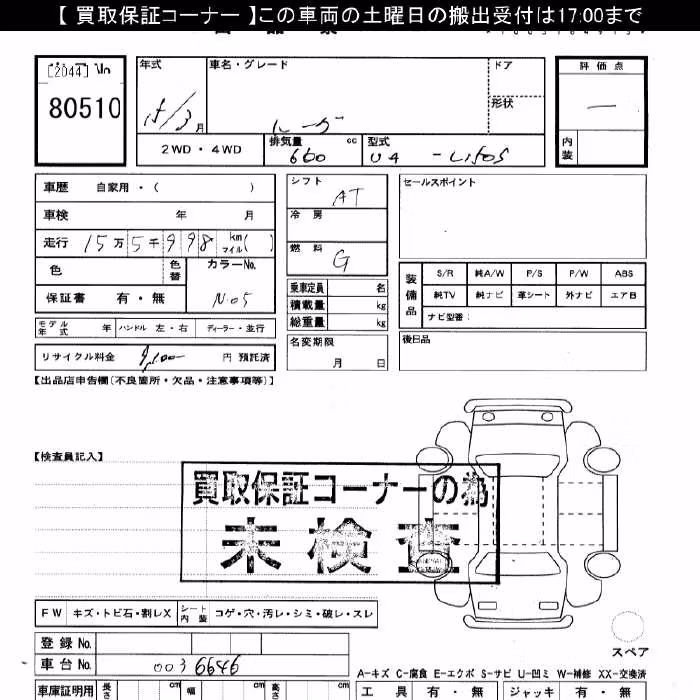 【 買取保証コーナー 】この車両の土曜日の搬出受付は17:00まで
[2044] No
80510
年式 車名・グレード ドア 評価点
15/3月 形状 —
2WD・4WD 排気量 660 cc 型式 内装
車歴 自家用・( ) シフト AT セールスポイント
車検 年 月 冷房
走行 15万5千998 km マイル( ) 燃料 G
色 色替 カラーNo. N05
保証書 有・無
装備品 S/R 純A/W P/S P/W ABS
純TV 純ナビ 革シート 外ナビ エアB
ナビ型番:
乗車定員 名
積載量 kg
総重量 kg
モデル年式 年 ハンドル 左・右 ディーラー・並行
名変期限 月 日
後日品
リサイクル料金 円 預託済
【出品店申告欄(不良箇所・欠品・注意事項等)】
【検査員記入】
買取保証コーナーの為
未検査
FW キズ・トビ石・割レX シート内装 コゲ・穴・汚レ・シミ・破レ・スレ
スペア
登録No.
車台No. 0036646
A-キズ C-腐食 E-エクボ S-サビ U-凹ミ W-補修 XX-交換済
車庫証明用 長さ cm 幅 cm 高さ cm 工具 有・無 ジャッキ 有・無